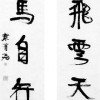 飛雲天
馬自行